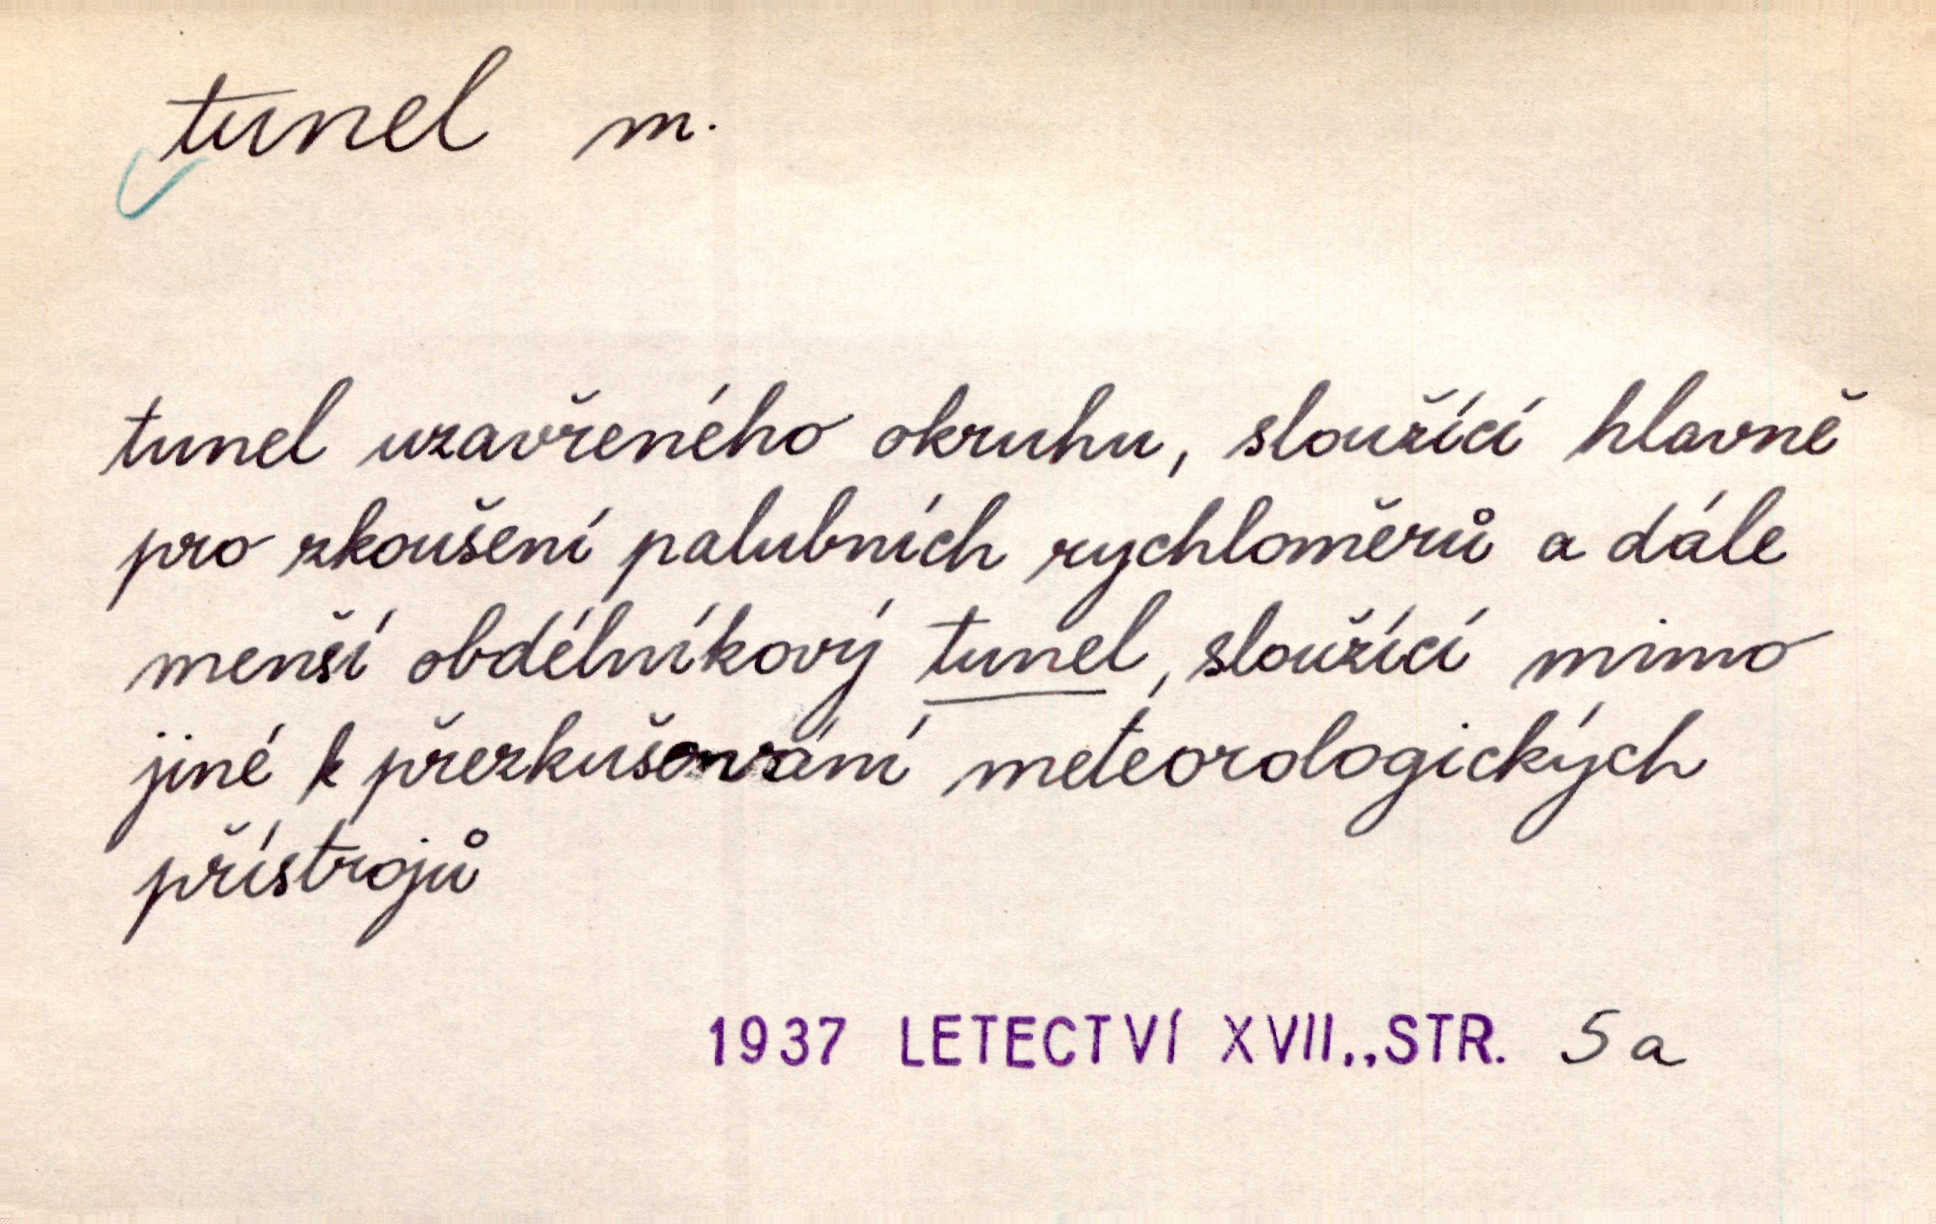 tunel m.
tunel uzavřeného okruhu, sloužící hlavně
pro zkoušení palubních rychloměrů a dále
menší obdélníkový tunel, sloužící mimo
jiné k přezkušování meteorologických
přístrojů
1937 LETECTVÍ XVII.,,STR. 5a